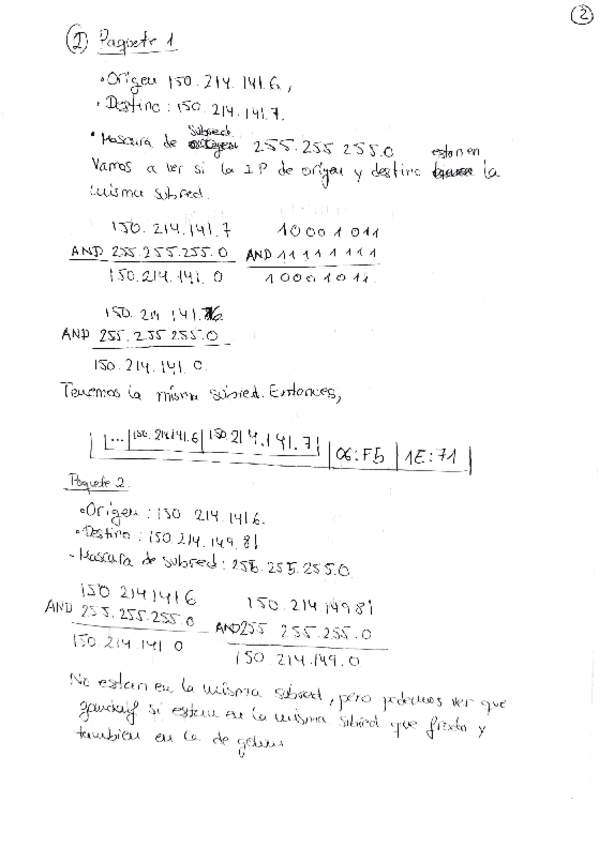 2
① Paquete 1
• Origen 150.214.141.6,
• Destino: 150.214.141.7.
• Mascara de subred 255.255 255.0 estan en
Vamos a ver si la IP de origen y destino la
misma subred.
150.214.141.7 10001011
AND 255.255.255.0 AND 11111111
150.214.141.0 10001011
150.214 141.6
AND 255.255 255.0
150.214.141.0.
Tenemos la misma subred. Entonces,
... 150.214.141.6 150 214.141.7 06:F5 1E:71
Paquete 2.
• Origen: 150 214.141 6.
• Destino: 150.214.149.81
- Mascara de subred: 255.255.255.0.
150 214 141 6 150.214 149 81
AND 255.255.255 0 AND 255 255.255.0
150 214.141 0 150.214.149.0
No estan en la misma subred, pero podemos ver que
gandalf si estan en la misma subred que frodo y
tambien en la de golum